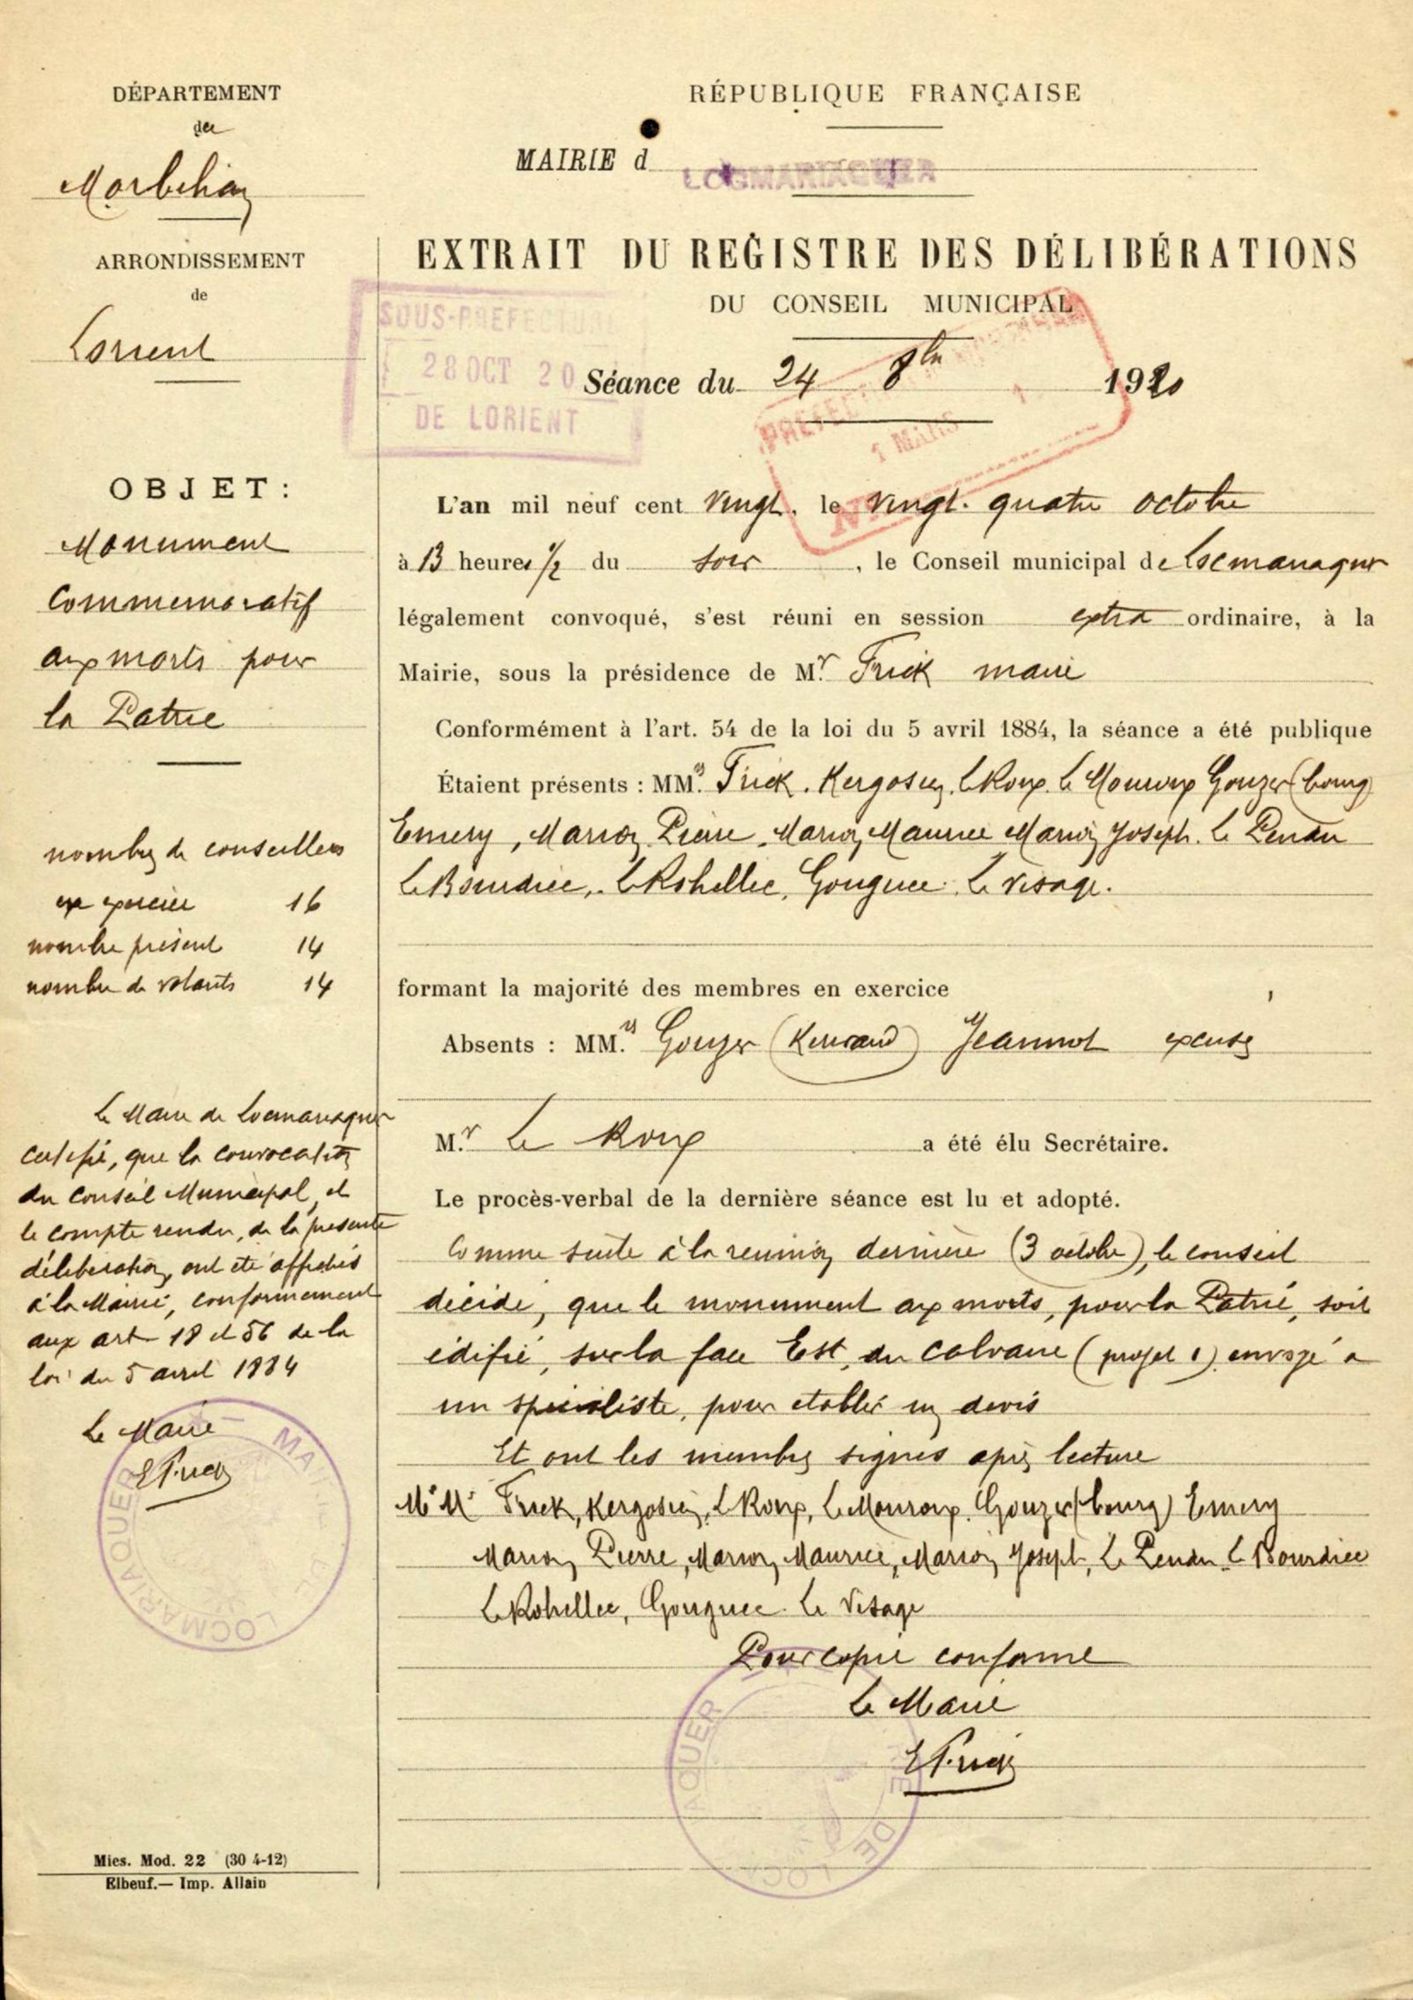 DÉPARTEMENT
du
Morbihan
ARRONDISSEMENT
de
Lorient
RÉPUBLIQUE FRANÇAISE
MAIRIE d LOCMARIAQUER
EXTRAIT DU REGISTRE DES DÉLIBÉRATIONS
DU CONSEIL MUNICIPAL
SOUS-PREFECTURE
28 OCT 20
DE LORIENT
Séance du 24 8bre 1920
1 MARS
OBJET :
Monument
Commemoratif
aux morts pour
la Patrie
nombre de conseillers
en exercice 16
nombre présent 14
nombre de votants 14
Le Maire de Locmariaquer
certifie, que la convocation
du Conseil Municipal, et
le compte rendu, de la présente
délibération, ont été affichés
à la Mairie, conformement
aux art 18 et 56 de la
loi du 5 avril 1884
Le Maire
EFrick
MAIRIE DE LOCMARIAQUER
L'an mil neuf cent vingt, le vingt-quatre octobre
à 13 heures 1/2 du soir, le Conseil municipal de Locmariaquer
légalement convoqué, s'est réuni en session extra ordinaire, à la
Mairie, sous la présidence de Mr Frick maire
Conformément à l'art. 54 de la loi du 5 avril 1884, la séance a été publique
Étaient présents : MMrs Frick, Kergosien, Le Roux, Le Mouroux Gouzer (bourg)
Emery, Marion Pierre, Marion Maurice Marion Joseph, Le Pendu
Le Bourdiec, Le Rohellec, Gouguec Le Visage.
formant la majorité des membres en exercice
Absents : MMrs Gouzer (Kerivaud) Jeannot excusé
Mr Le Roux a été élu Secrétaire.
Le procès-verbal de la dernière séance est lu et adopté.
Comme suite à la reunion dernière (3 octobre), le conseil
décide, que le monument aux morts, pour la Patrie, soit
édifié, sur la face Est, du Calvaire (projet 1) envoyé a
un spécialiste, pour etablir un devis
Et ont les membres signés après lecture
M.M. Frick, Kergosien, Le Roux, Le Mouroux, Gouzer (bourg) Emery
Marion Pierre, Marion Maurice, Marion Joseph, Le Pendu Le Bourdiec
Le Rohellec, Gouguec Le Visage
Pour copie conforme
Le Maire
EFrick
MAIRIE DE LOCMARIAQUER
Mies. Mod. 22 (30 4-12)
Elbeuf.— Imp. Allain